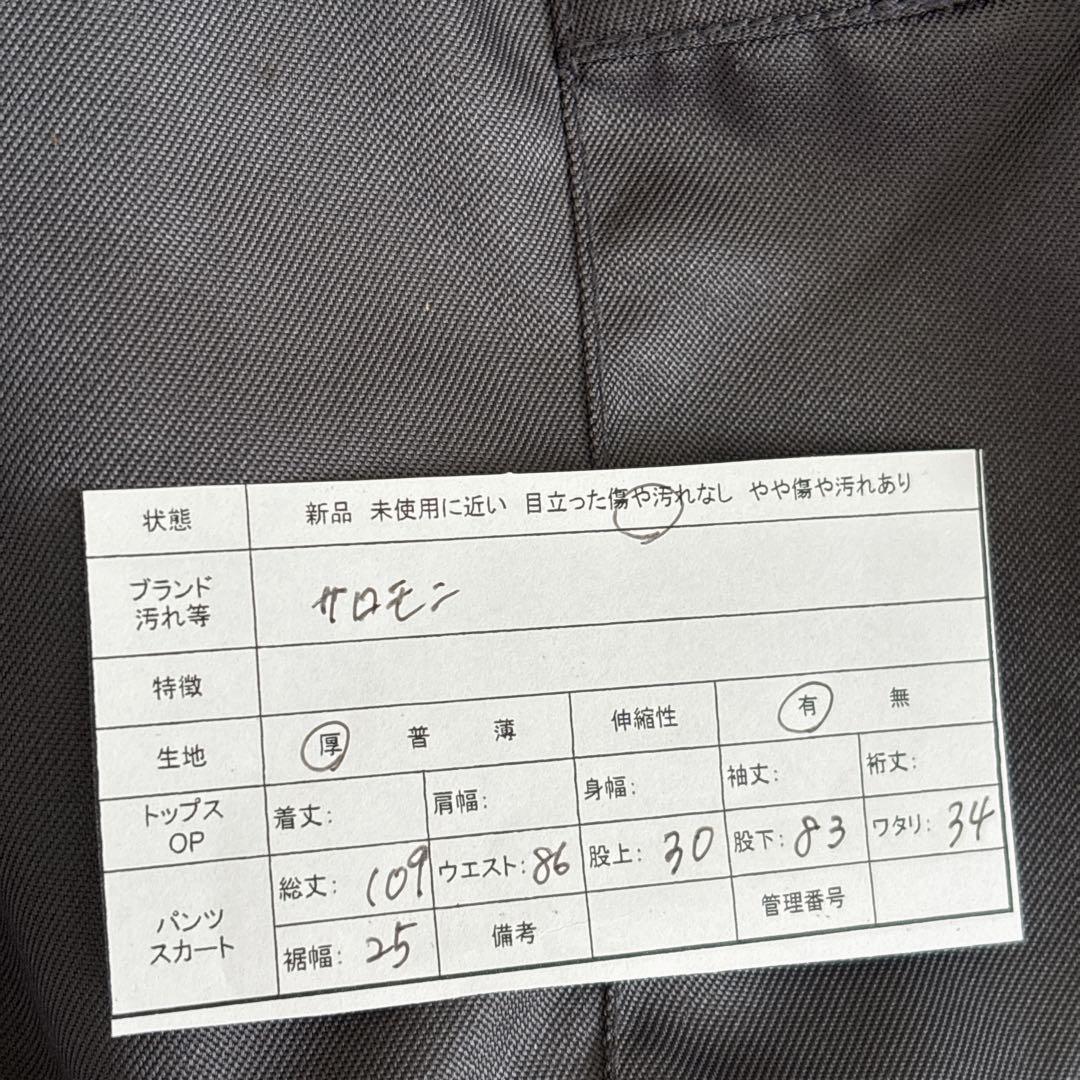 状態 新品 未使用に近い 目立った傷や汚れなし やや傷や汚れあり
ブランド
汚れ等 サロモン
特徴
生地 厚 普 薄 伸縮性 有 無
トップス
OP 着丈: 肩幅: 身幅: 袖丈: 裄丈:
パンツ
スカート 総丈: 109 ウエスト: 86 股上: 30 股下: 83 ワタリ: 34
裾幅: 25 備考 管理番号